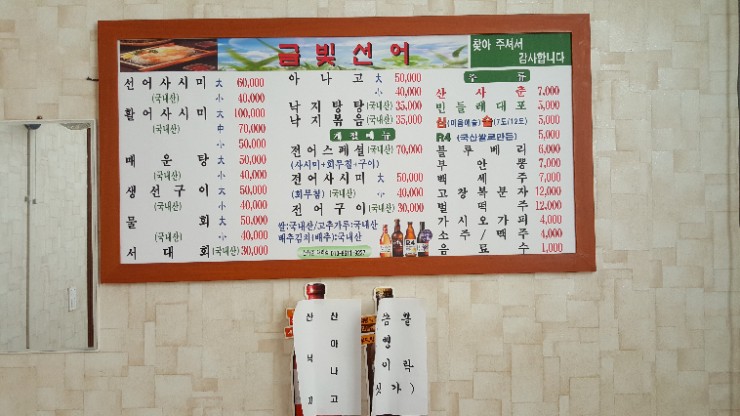 금빛선어
찾아 주셔서
감사합니다
선어사시미 大 60,000
(국내산) 小 40,000
활어사시미 大 100,000
(국내산) 中 70,000
小 50,000
매운탕 大 50,000
(국내산) 小 40,000
생선구이 大 50,000
(국내산) 小 40,000
물회 大 50,000
(국내산) 小 40,000
서대회 (국내산) 30,000
아나고 大 50,000
小 40,000
낙지탕탕 (국내산) 35,000
낙지볶음 (국내산) 35,000
계절메뉴
전어스페셜 (국내산) 70,000
(사시미+회무침+구이)
전어사시미 大 50,000
(회무침) (국내산) 小 40,000
전어구이 (국내산) 30,000
쌀:국내산/고추가루:국내산
배추김치(배추):국내산
주류
산사춘 7,000
민들레대포 5,000
(미음예술) (7도/12도) 5,000
R4 (국산쌀로만든) 5,000
블루베리 6,000
부안뽕 7,000
백세주 7,000
고창복분자 12,000
벌떡주 12,000
가시오가피 4,000
소주/맥주 4,000
음료수 1,000
산 아나고